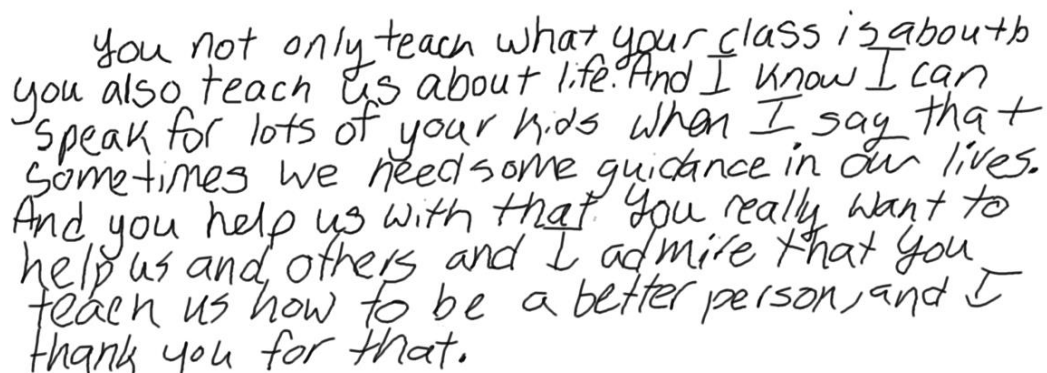 You not only teach what your class is about
you also teach us about life. And I know I can
speak for lots of your kids when I say that
sometimes we need some guidance in our lives.
And you help us with that. You really want to
help us and others and I admire that you
teach us how to be a better person, and I
thank you for that.